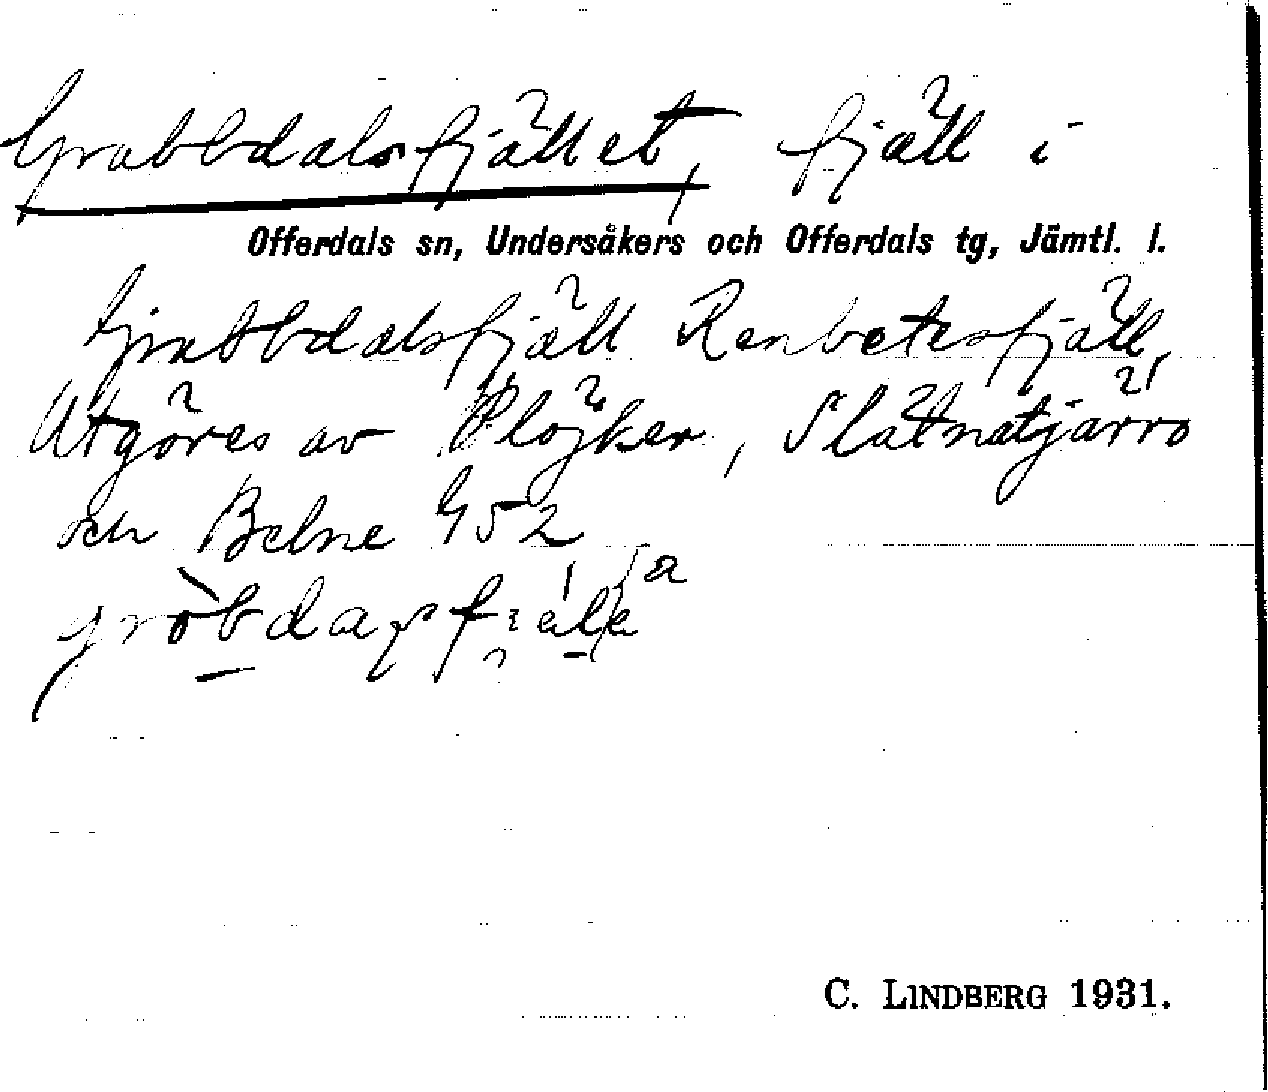 Grabbdalsfjället, fjäll i
Offerdals sn, Undersåkers och Offerdals tg, Jämtl. l.
Grabbdalsfjäll Renbetesfjäll,
Utgöres av Plöjker, Slåtnatjärro
och Belne G52
C. LINDBERG 1931.